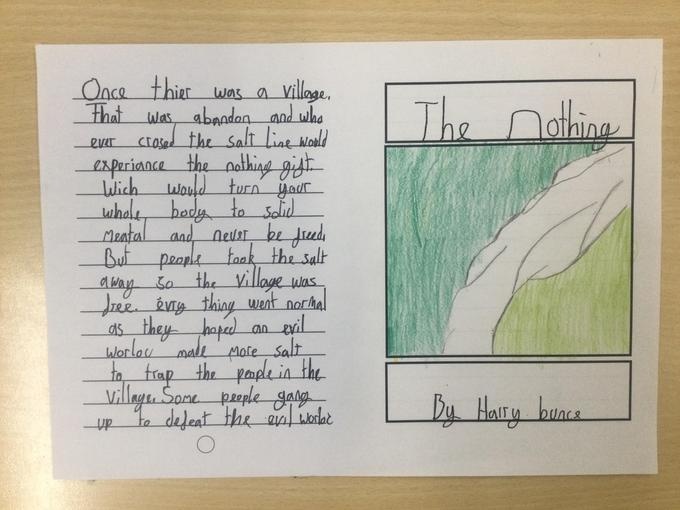 Once thier was a village.
That was abandon and who
ever crosed the salt line would
experiance the nothing gift.
Wich would turn your
whole body to solid
mental and never be freed.
But people took the salt
away so the village was
free. evry thing went normal
as they hoped an evil
worloc made more salt
to trap the people in the
village. Some people gang
up to defeat the evil worloc
The Nothing
By Harry bunce